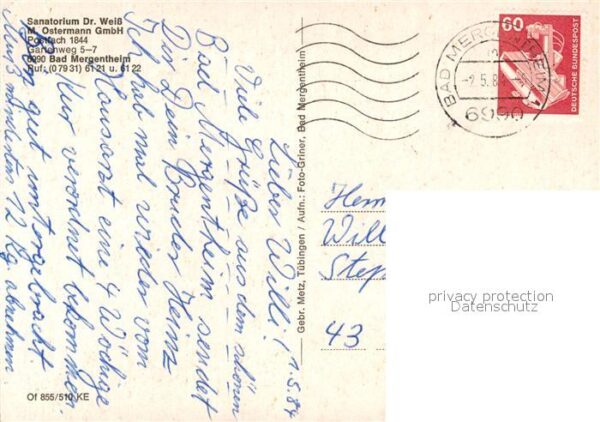 Sanatorium Dr. Weiß
M. Ostermann GmbH
Postfach 1844
Gartenweg 5–7
6990 Bad Mergentheim
Ruf: (07931) 6121 u. 6122
Lieber Willi! 1.5.84
Viele Grüße aus dem schönen
Bad Mergentheim sendet
Dir Dein Bruder Heinz
Ich hab mal wieder vom
Hausarzt eine 4 Wöchige
Kur verordnet bekommen.
Bin gut untergebracht.
Muß mindestens 12 Kg. abnehmen.
Of 855/510 KE
Gebr. Metz, Tübingen / Aufn.: Foto-Griner, Bad Mergentheim
BAD MERGENTHEIM 1
-2.5.84
6990
60
DEUTSCHE BUNDESPOST
Herrn
Will
Step
43
privacy protection
Datenschutz